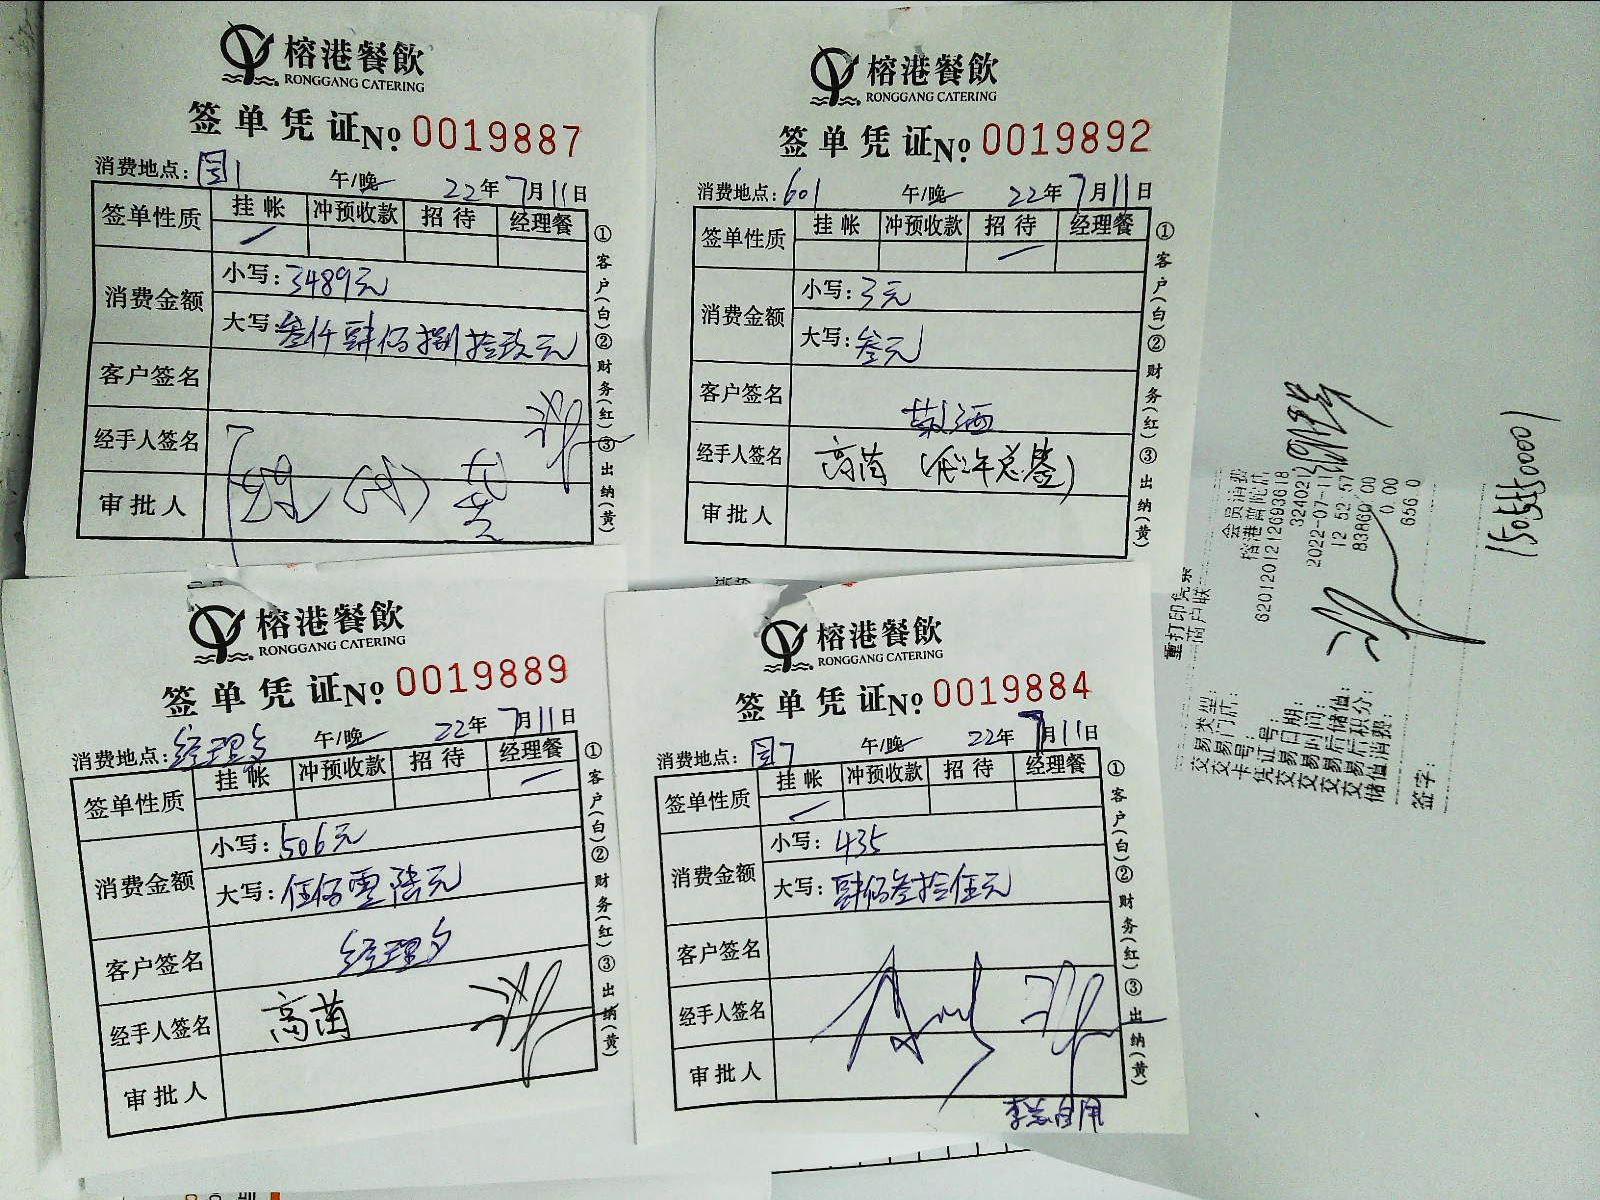 榕港餐飲
RONGGANG CATERING
签单凭证№ 0019887
消费地点：国1 午/晚 22年7月11日
签单性质 挂帐 冲预收款 招待 经理餐
消费金额 小写：3489元
大写：叁仟肆佰捌拾玖元
客户签名
经手人签名
审批人
①客户(白)②财务(红)③出纳(黄)
榕港餐飲
RONGGANG CATERING
签单凭证№ 0019892
消费地点：601 午/晚 22年7月11日
签单性质 挂帐 冲预收款 招待 经理餐
消费金额 小写：3元
大写：叁元
客户签名
经手人签名 高茵
审批人
①客户(白)②财务(红)③出纳(黄)
榕港餐飲
RONGGANG CATERING
签单凭证№ 0019889
消费地点：经理夕 午/晚 22年7月11日
签单性质 挂帐 冲预收款 招待 经理餐
消费金额 小写：506元
大写：伍佰零陆元
客户签名 经理夕
经手人签名 高茵
审批人
①客户(白)②财务(红)③出纳(黄)
榕港餐飲
RONGGANG CATERING
签单凭证№ 0019884
消费地点：国7 午/晚 22年7月11日
签单性质 挂帐 冲预收款 招待 经理餐
消费金额 小写：435
大写：肆佰叁拾伍元
客户签名
经手人签名
审批人
①客户(白)②财务(红)③出纳(黄)
重打印凭条
商户联
交易类型： 会员消费
交易门店： 榕港普陀店
卡号： 6201201212693618
凭证号： 324021
交易日期： 2022-07-11
交易时间： 12 52 57
交易后储值： 83860 00
交易后积分： 0.00
储值消费： 656.0
签字：
15055550001